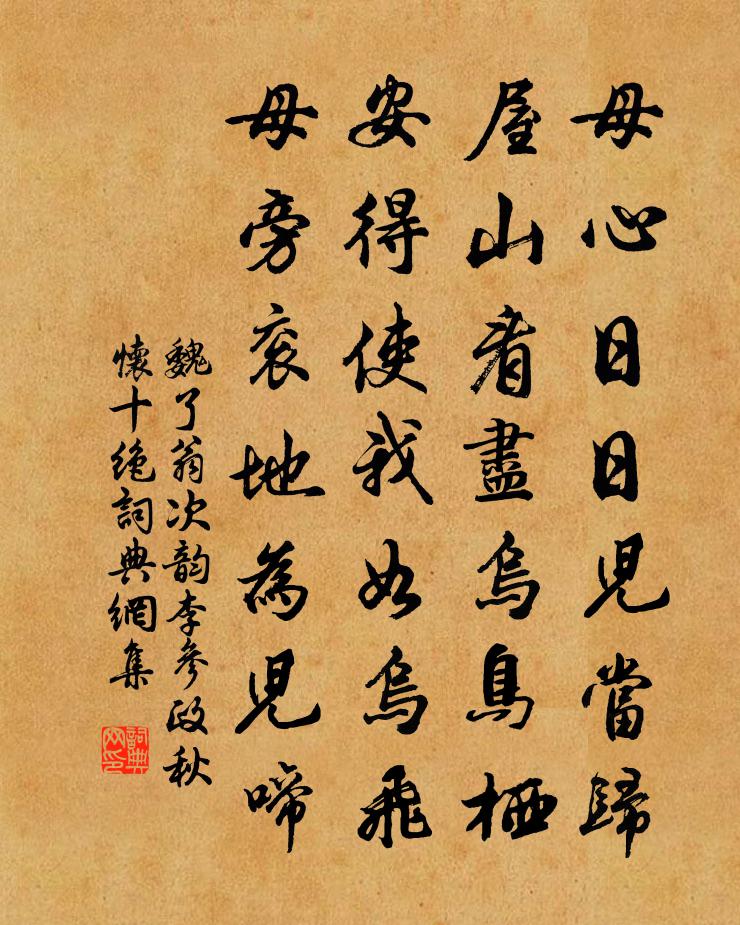 母心日日兒當歸
屋山看盡烏鳥栖
安得使我如烏飛
母旁衮地為兒啼
魏了翁次韵李參政秋
懷十絶詞典網集
詞典
网印